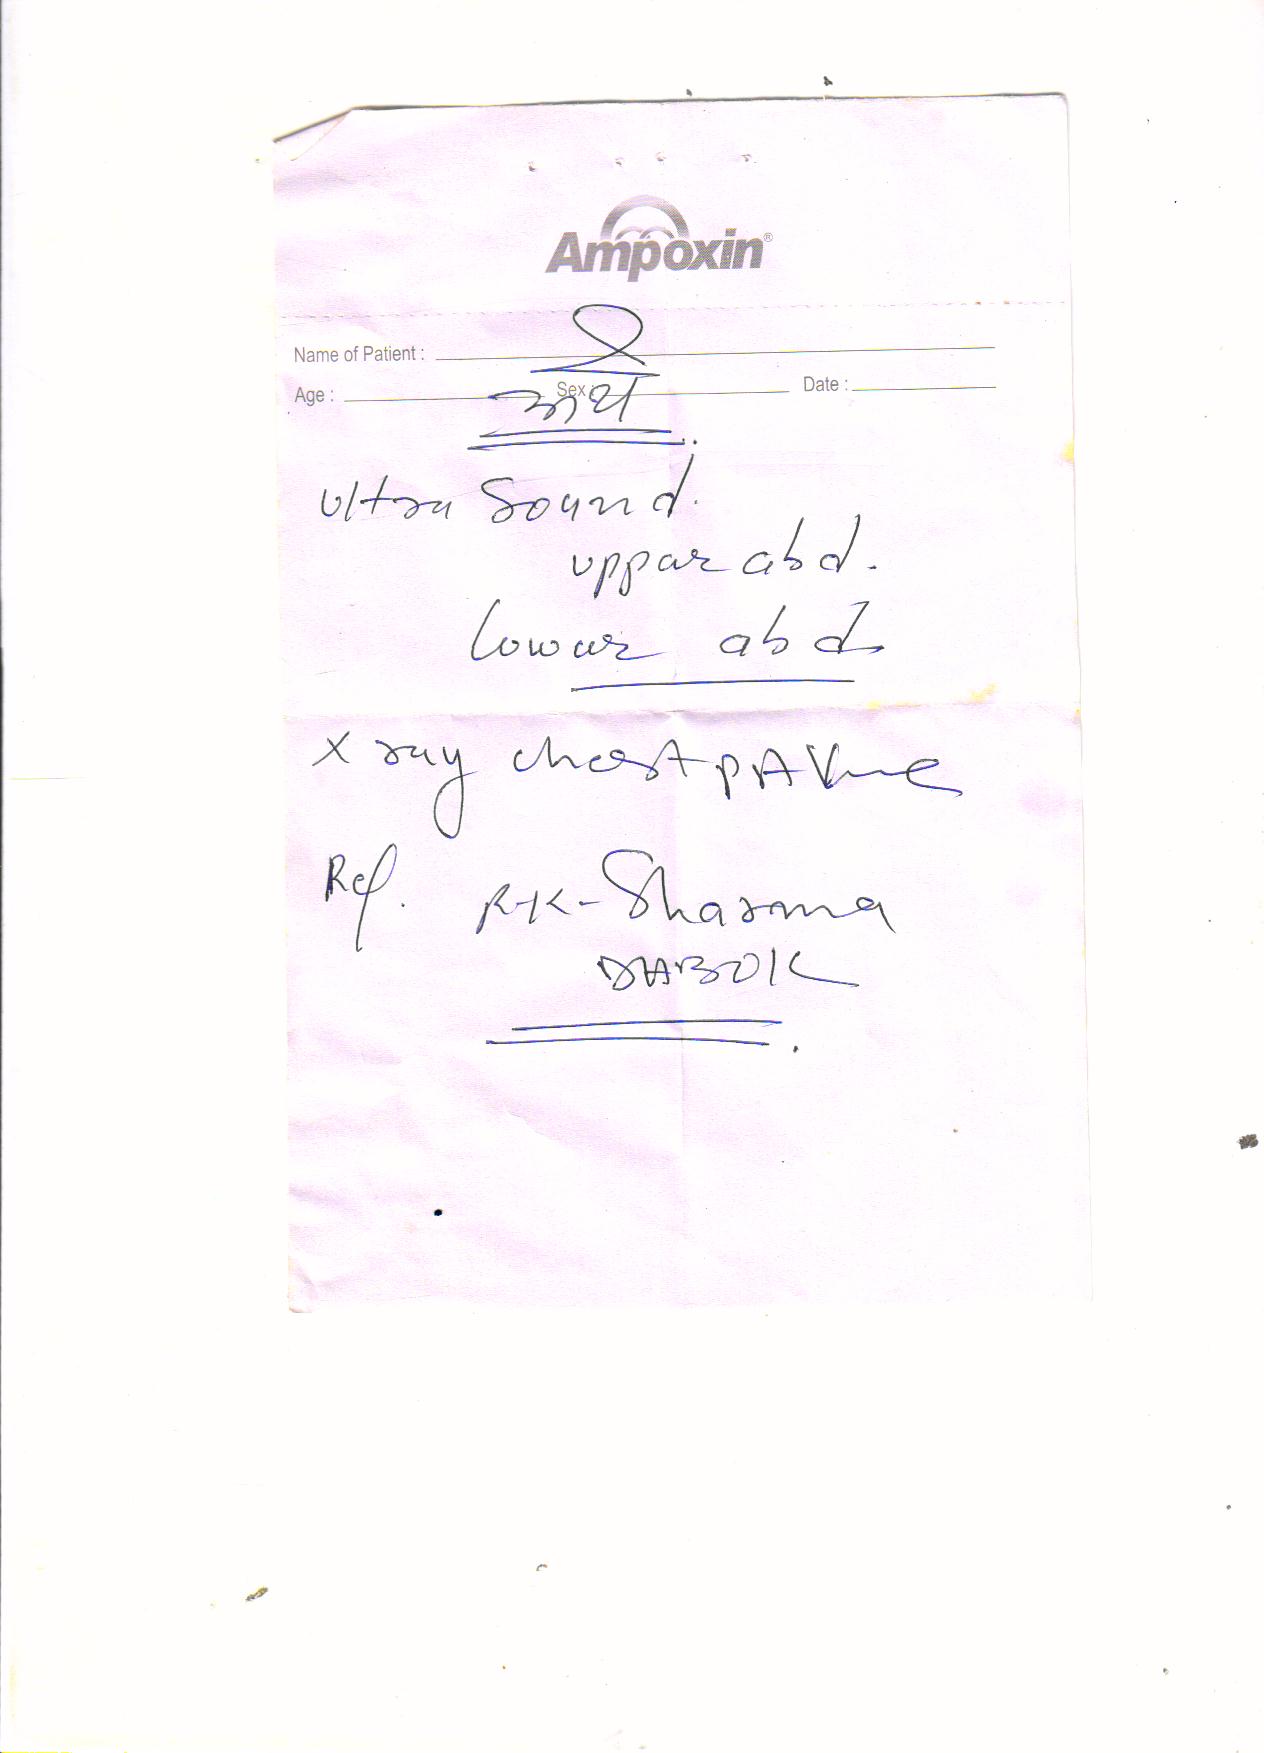 Ampoxin®
Name of Patient :
Age : Sex : Date :
Ultra Sound.
uppar abd.
Lowar abd
X ray chest PA
Ref. R.K-Sharma
DABOK